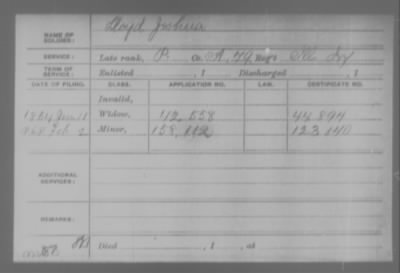 NAME OF SOLDIER: Lloyd Joshua
SERVICE: Late rank, P. Co. A, 49 Reg't Ill Inf
TERM OF SERVICE: Enlisted , 1 Discharged , 1
DATE OF FILING. CLASS. APPLICATION NO. LAW. CERTIFICATE NO.
Invalid,
1864 Widow, 42,558 44,894
1868 Feb Minor, 158,112 123,140
ADDITIONAL SERVICES:
REMARKS:
Died , 1 , at